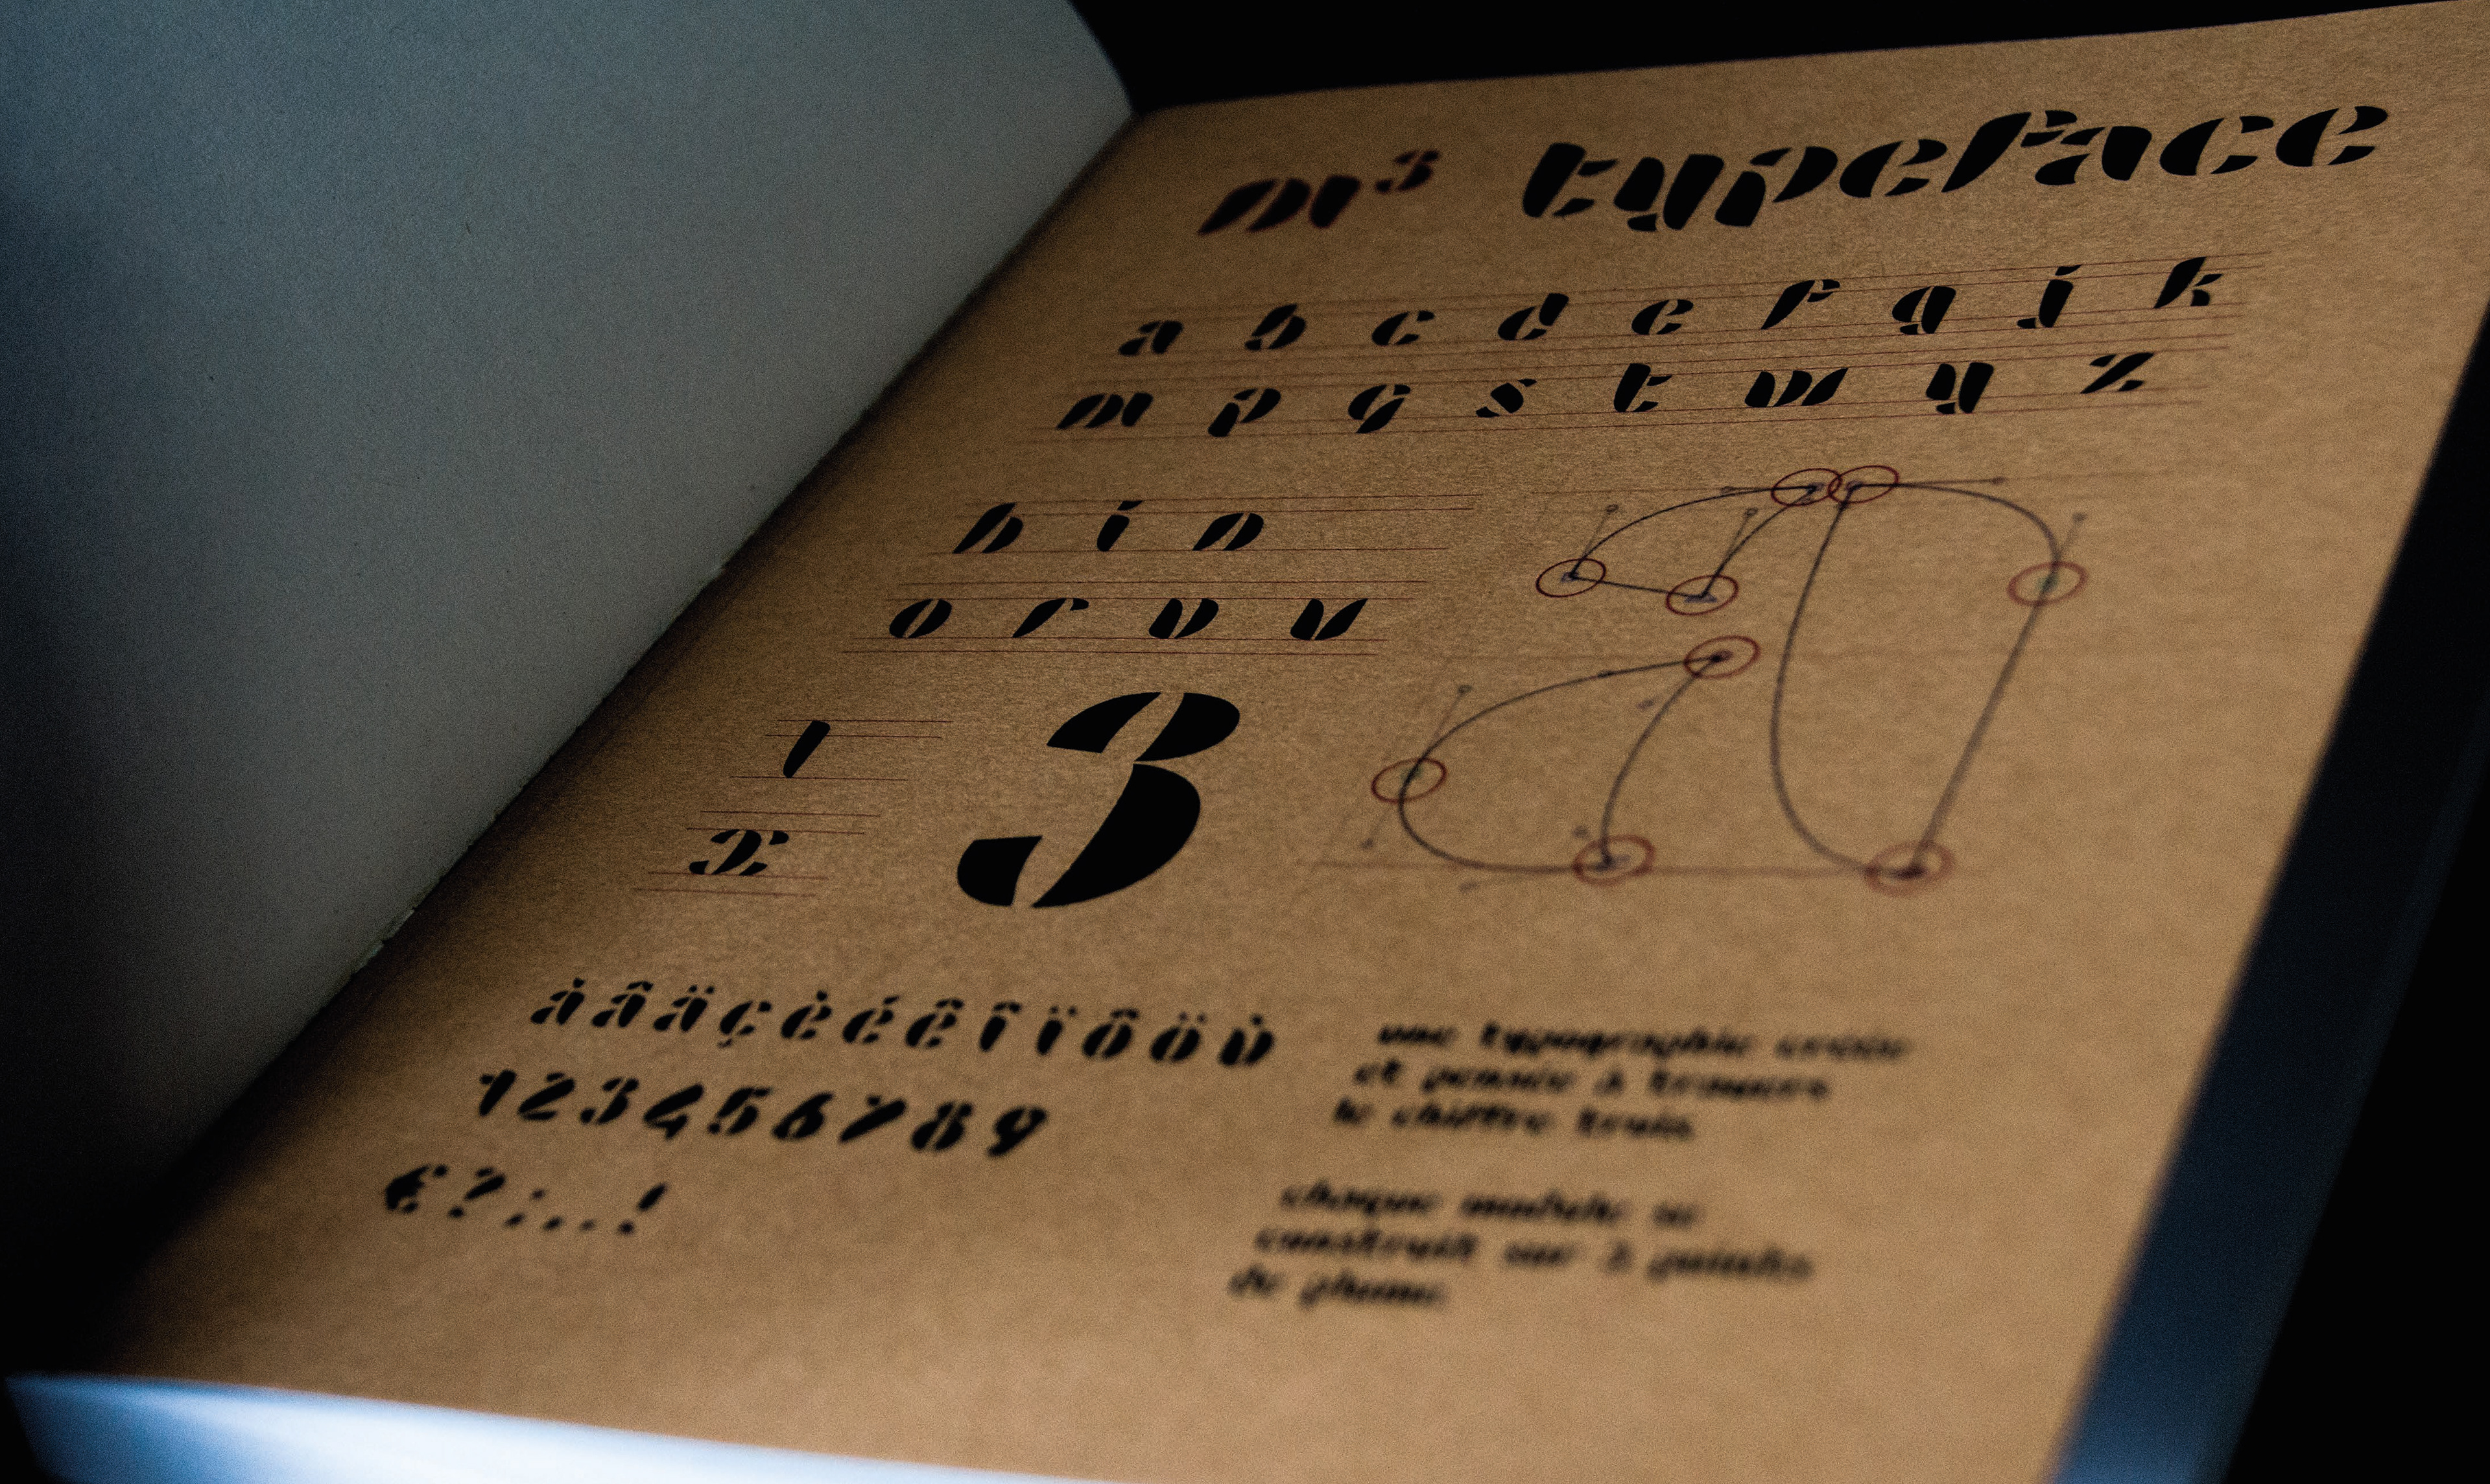 m³ typeface
a b c d e f g j k
m p q s t w y z
h i n
o r v u
l
3
x
à â ä ç è é ê î ï ô ö ù
1 2 3 4 5 6 7 8 9
€ ? ; , . !
une typographie créée
et pensée à travers
le chiffre trois.
chaque module se
construit sur 3 points
de plume.